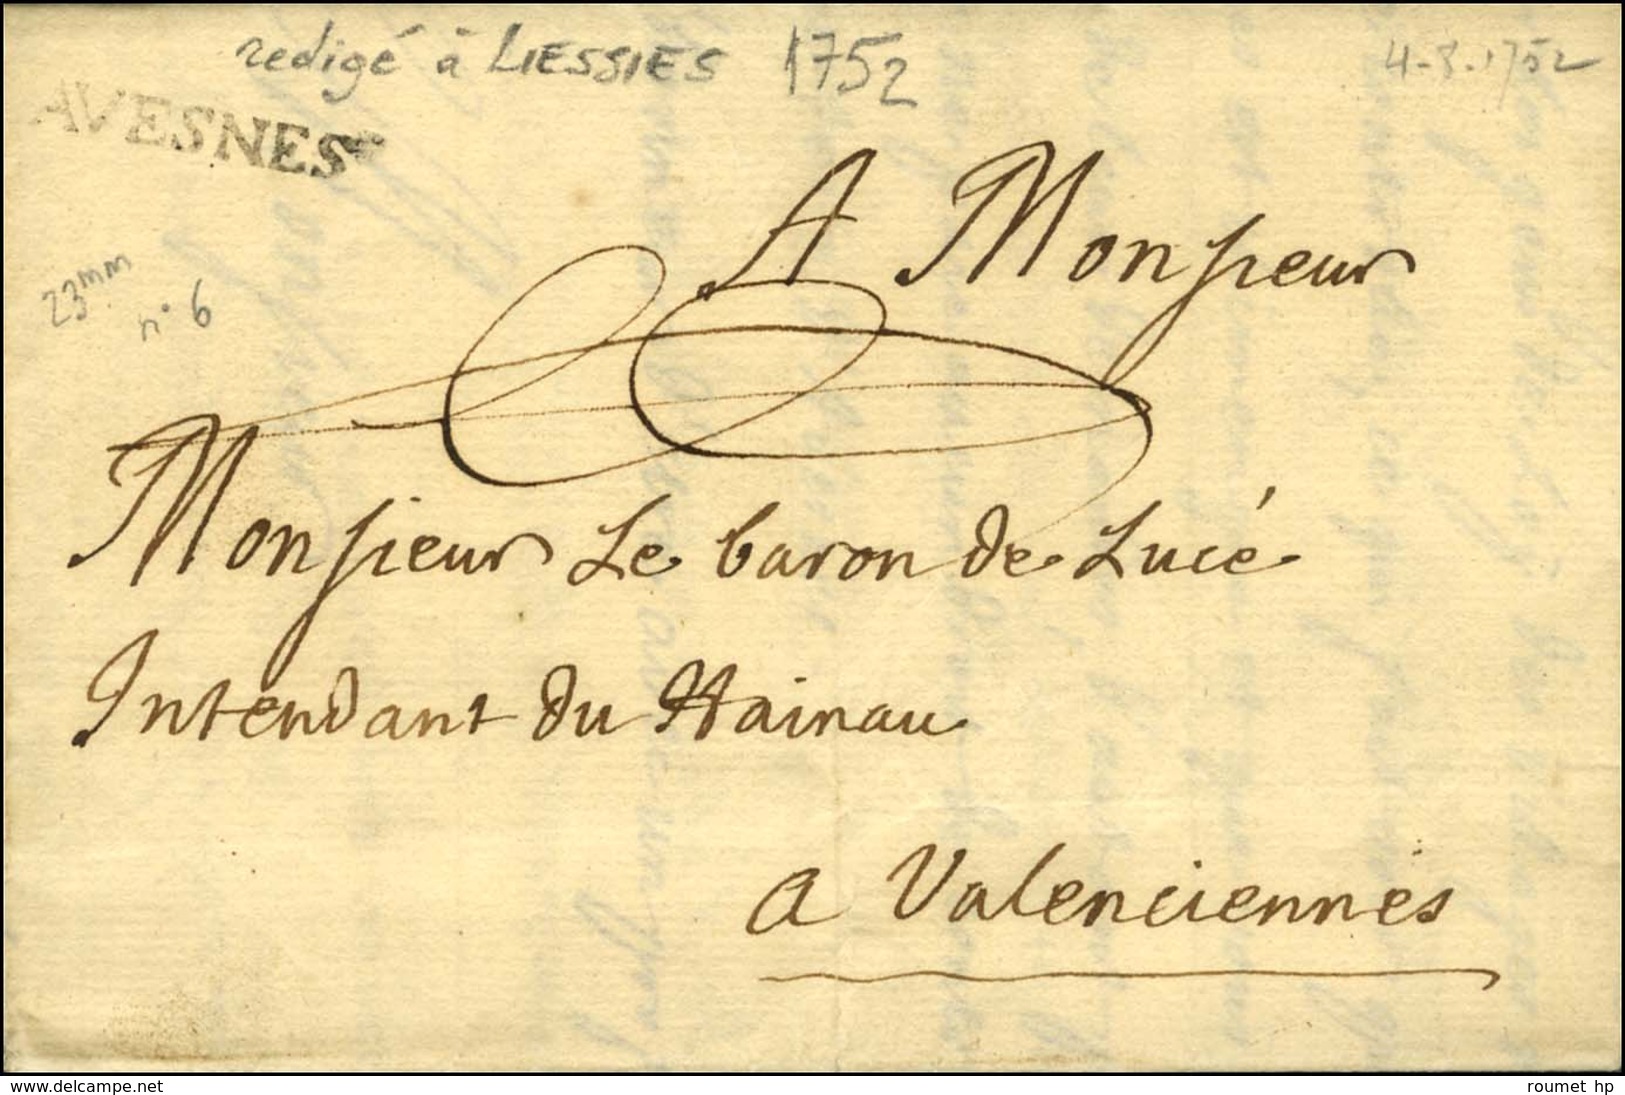 redigé à LIESSIES 1752
4-8-1752
AVESNES
23mm
n° 6
A Monsieur
Monsieur Le baron de Lucé
Intendant du Hainau
a Valenciennes
www.delcampe.net
roumet hp